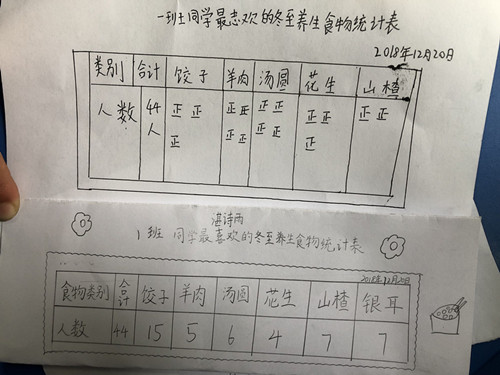 一班同学最喜欢的冬至养生食物统计表
2018年12月20日
类别 合计 饺子 羊肉 汤圆 花生 山楂
人数 44人 正正正 正正正正 正正正正 正正正 正正
湛诗雨
1班 同学最喜欢的冬至养生食物统计表
2018年12月20日
食物类别 合计 饺子 羊肉 汤圆 花生 山楂 银耳
人数 44 15 5 6 4 7 7